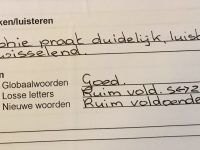 ken/luisteren
phie praat duidelijk, luist
wisselend.
n
Globaalwoorden Goed.
Losse letters Ruim vold. S472
Nieuwe woorden Ruim voldoende